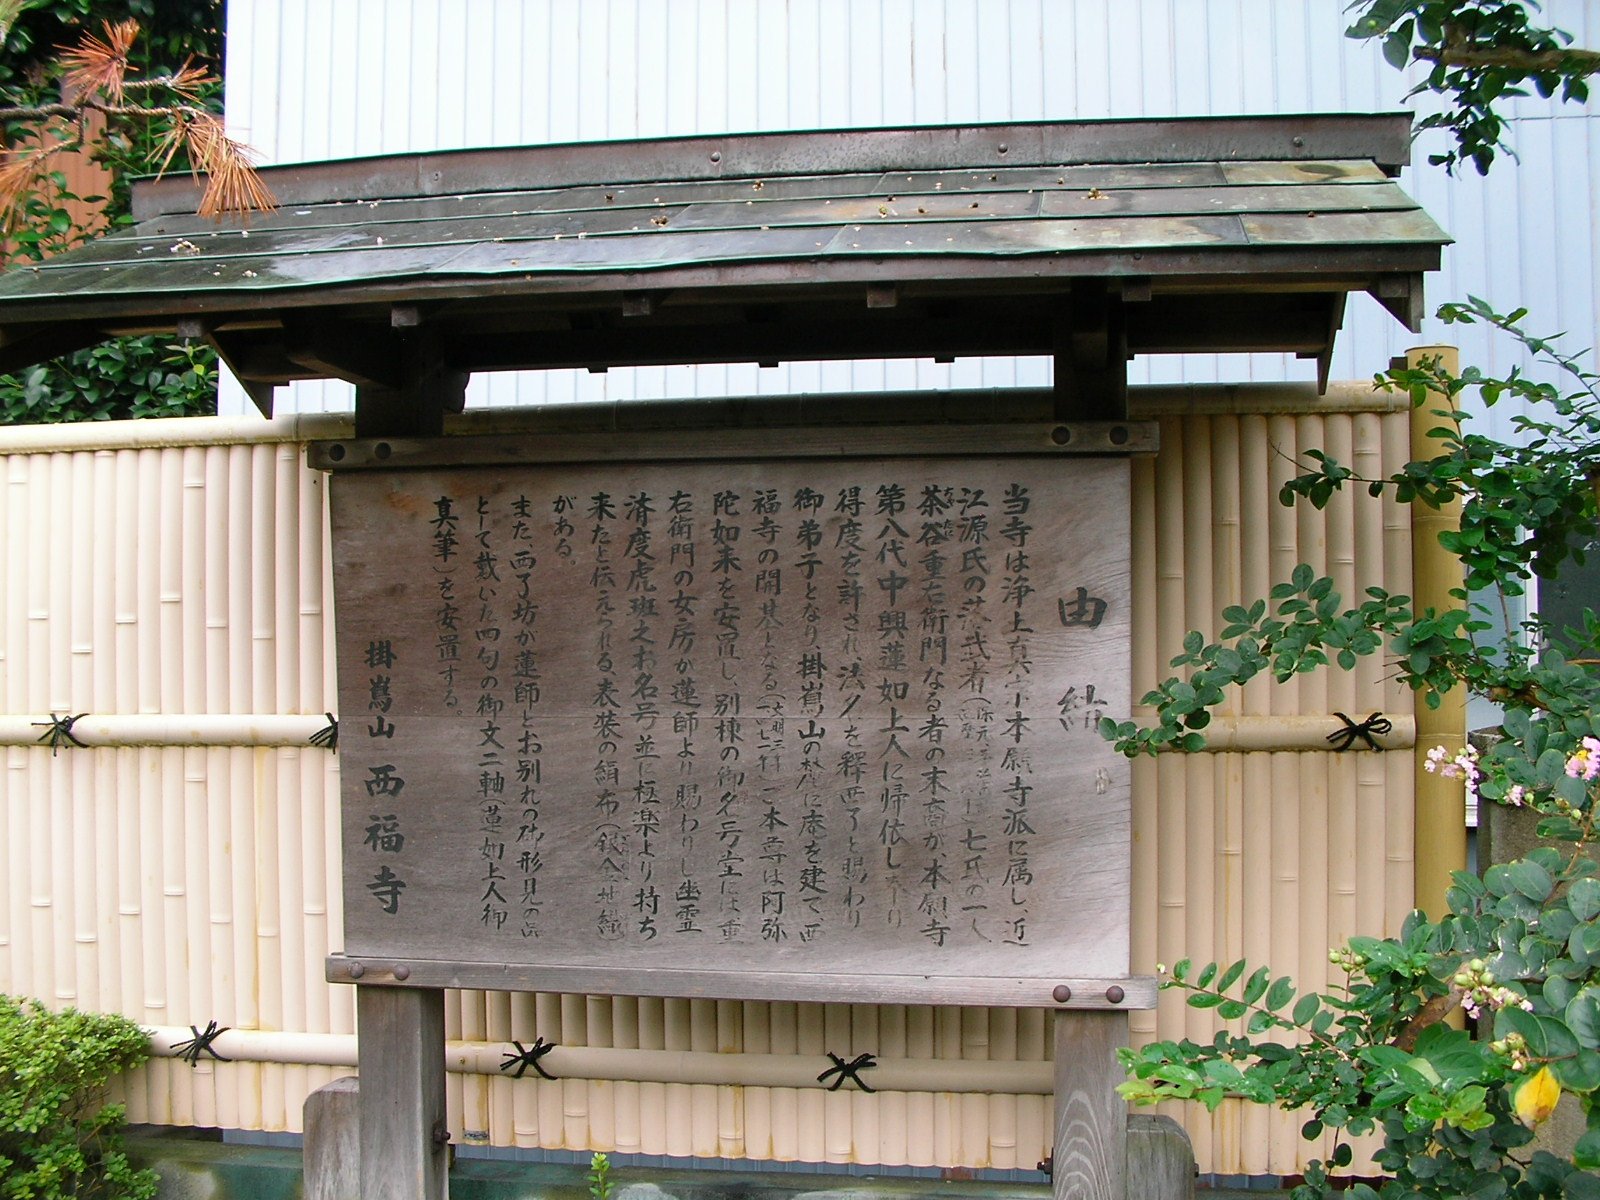 由緒
当寺は浄土真宗本願寺派に属し、近
江源氏の落武者(七氏の一人
茶谷重右衛門なる者の末裔が、本願寺
第八代中興蓮如上人に帰依し奉り
得度を許され、法名を釋西了と賜わり
御弟子となり、掛嶌山の麓に庵を建て、西
福寺の開基となる(文明三年)ご本尊は阿弥
陀如来を安置し、別棟の御名号堂には重
右衛門の女房が蓮師より賜わりし幽霊
済度虎斑之お名号並に極楽より持ち
来たと伝えられる、表装の絹布(銀金地織)
がある。
また、西了坊が蓮師とお別れの御形見の品
として戴いた四句の御文二軸(蓮如上人御
真筆)を安置する。
掛嶌山 西福寺